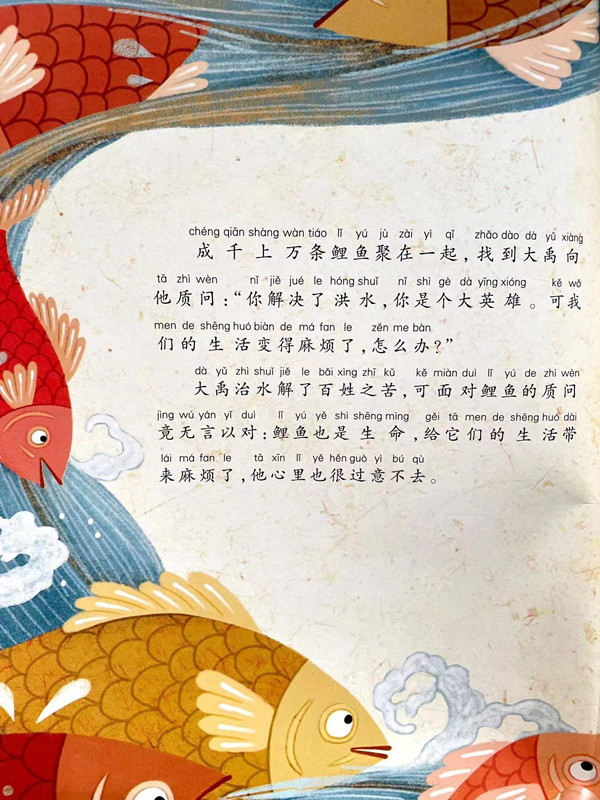 chéng qiān shàng wàn tiáo lǐ yú jù zài yì qǐ zhǎo dào dà yǔ xiàng
成千上万条鲤鱼聚在一起，找到大禹向
tā zhì wèn nǐ jiě jué le hóng shuǐ nǐ shì gè dà yīng xióng kě wǒ
他质问：“你解决了洪水，你是个大英雄。可我
men de shēng huó biàn de má fan le zěn me bàn
们的生活变得麻烦了，怎么办？”
dà yǔ zhì shuǐ jiě le bǎi xìng zhī kǔ kě miàn duì lǐ yú de zhì wèn
大禹治水解了百姓之苦，可面对鲤鱼的质问
jìng wú yán yǐ duì lǐ yú yě shì shēng mìng gěi tā men de shēng huó dài
竟无言以对：鲤鱼也是生命，给它们的生活带
lái má fan le tā xīn lǐ yě hěn guò yì bú qù
来麻烦了，他心里也很过意不去。